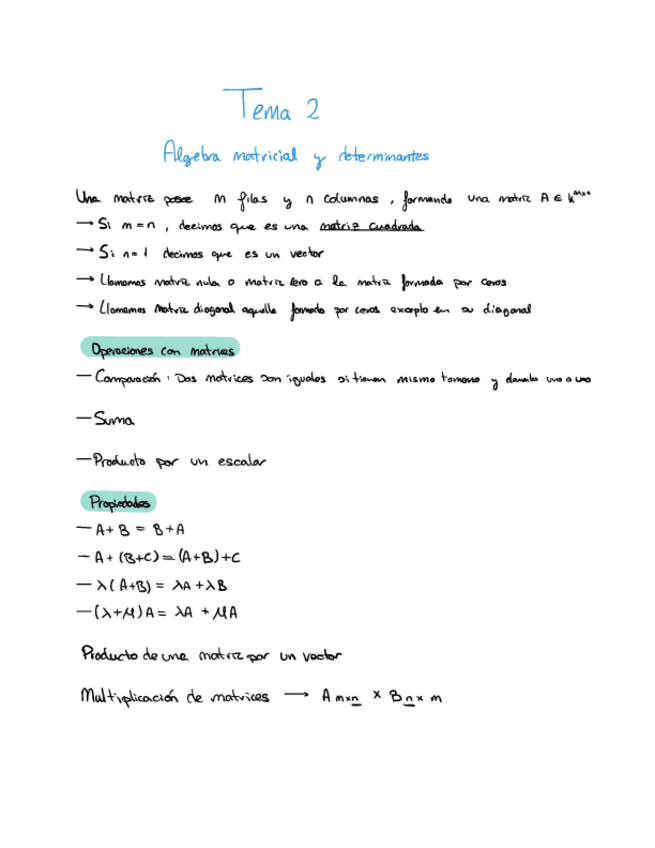 Tema 2
Algebra matricial y determinantes
Una matriz posee m filas y n columnas, formando una matriz A ∈ K^mxn
→ Si m=n, decimos que es una matriz cuadrada
→ Si n=1 decimos que es un vector
→ Llamamos matriz nula o matriz cero a la matriz formada por ceros
→ Llamamos matriz diagonal aquella formada por ceros excepto en su diagonal
Operaciones con matrices
— Comparación: Dos matrices son iguales si tienen mismo tamano y uno a uno
— Suma
— Producto por un escalar
Propiedades
— A+B = B+A
— A+(B+C)=(A+B)+C
— λ(A+B) = λA+λB
— (λ+μ)A = λA + μA
Producto de una matriz por un vector
Multiplicación de matrices → A mxn × B nxm